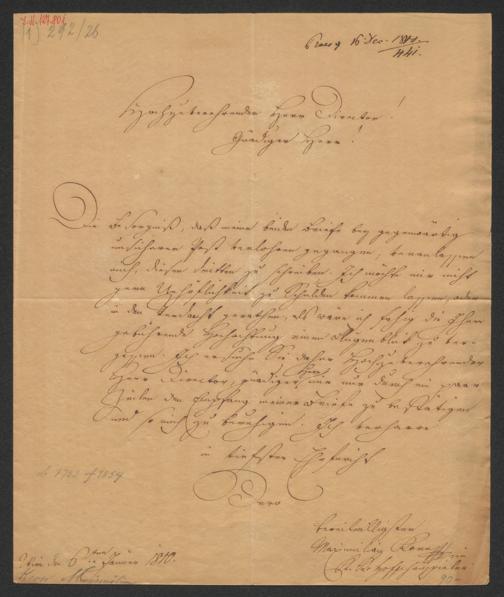 I.N. 129.801
(1) 292/26
Praes 9 16 Dec. 1810
441.
Hochzuverehrender Herr Director!
Gnädiger Herr!
Die Besorgniß, daß meine beiden Briefe bey gegenwärtig
unsicherer Post verlohren gegangen, veranlassen
mich, diesen dritten zu schreiben. Ich möchte mir nicht
gern Unhöflichkeit zu Schulden kommen lassen, oder
in den Verdacht gerathen, als wäre ich fähig die Ihnen
gebührende Hochachtung einen Augenblick zu ver-
gessen. Ich ersuche Sie daher Hochzuverehrender
Herr Director, gnädiger Herr, mir nur durch ein paar
Zeilen den Empfang meiner Briefe zu bestätigen
und so mich zu beruhigen. Ich verharre
in tiefster Ehrfurcht
Dero
bereitwilligster
Maximilian Korn
k. k. Hofschauspieler
* 1782 † 1854
Wien den 6ten Jänner 1810.
Korn Maximilian